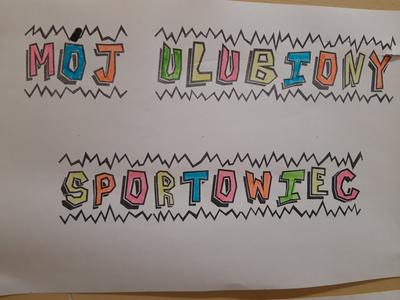 MÓJ ULUBIONY
SPORTOWIEC